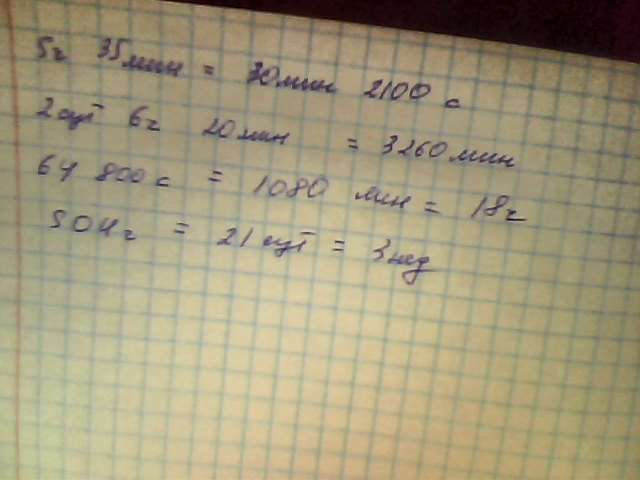 5ч 35мин = 30мин 2100 с
2сут 6ч 20мин = 3260мин
64 800с = 1080 мин = 18ч
504ч = 21сут = 3нед